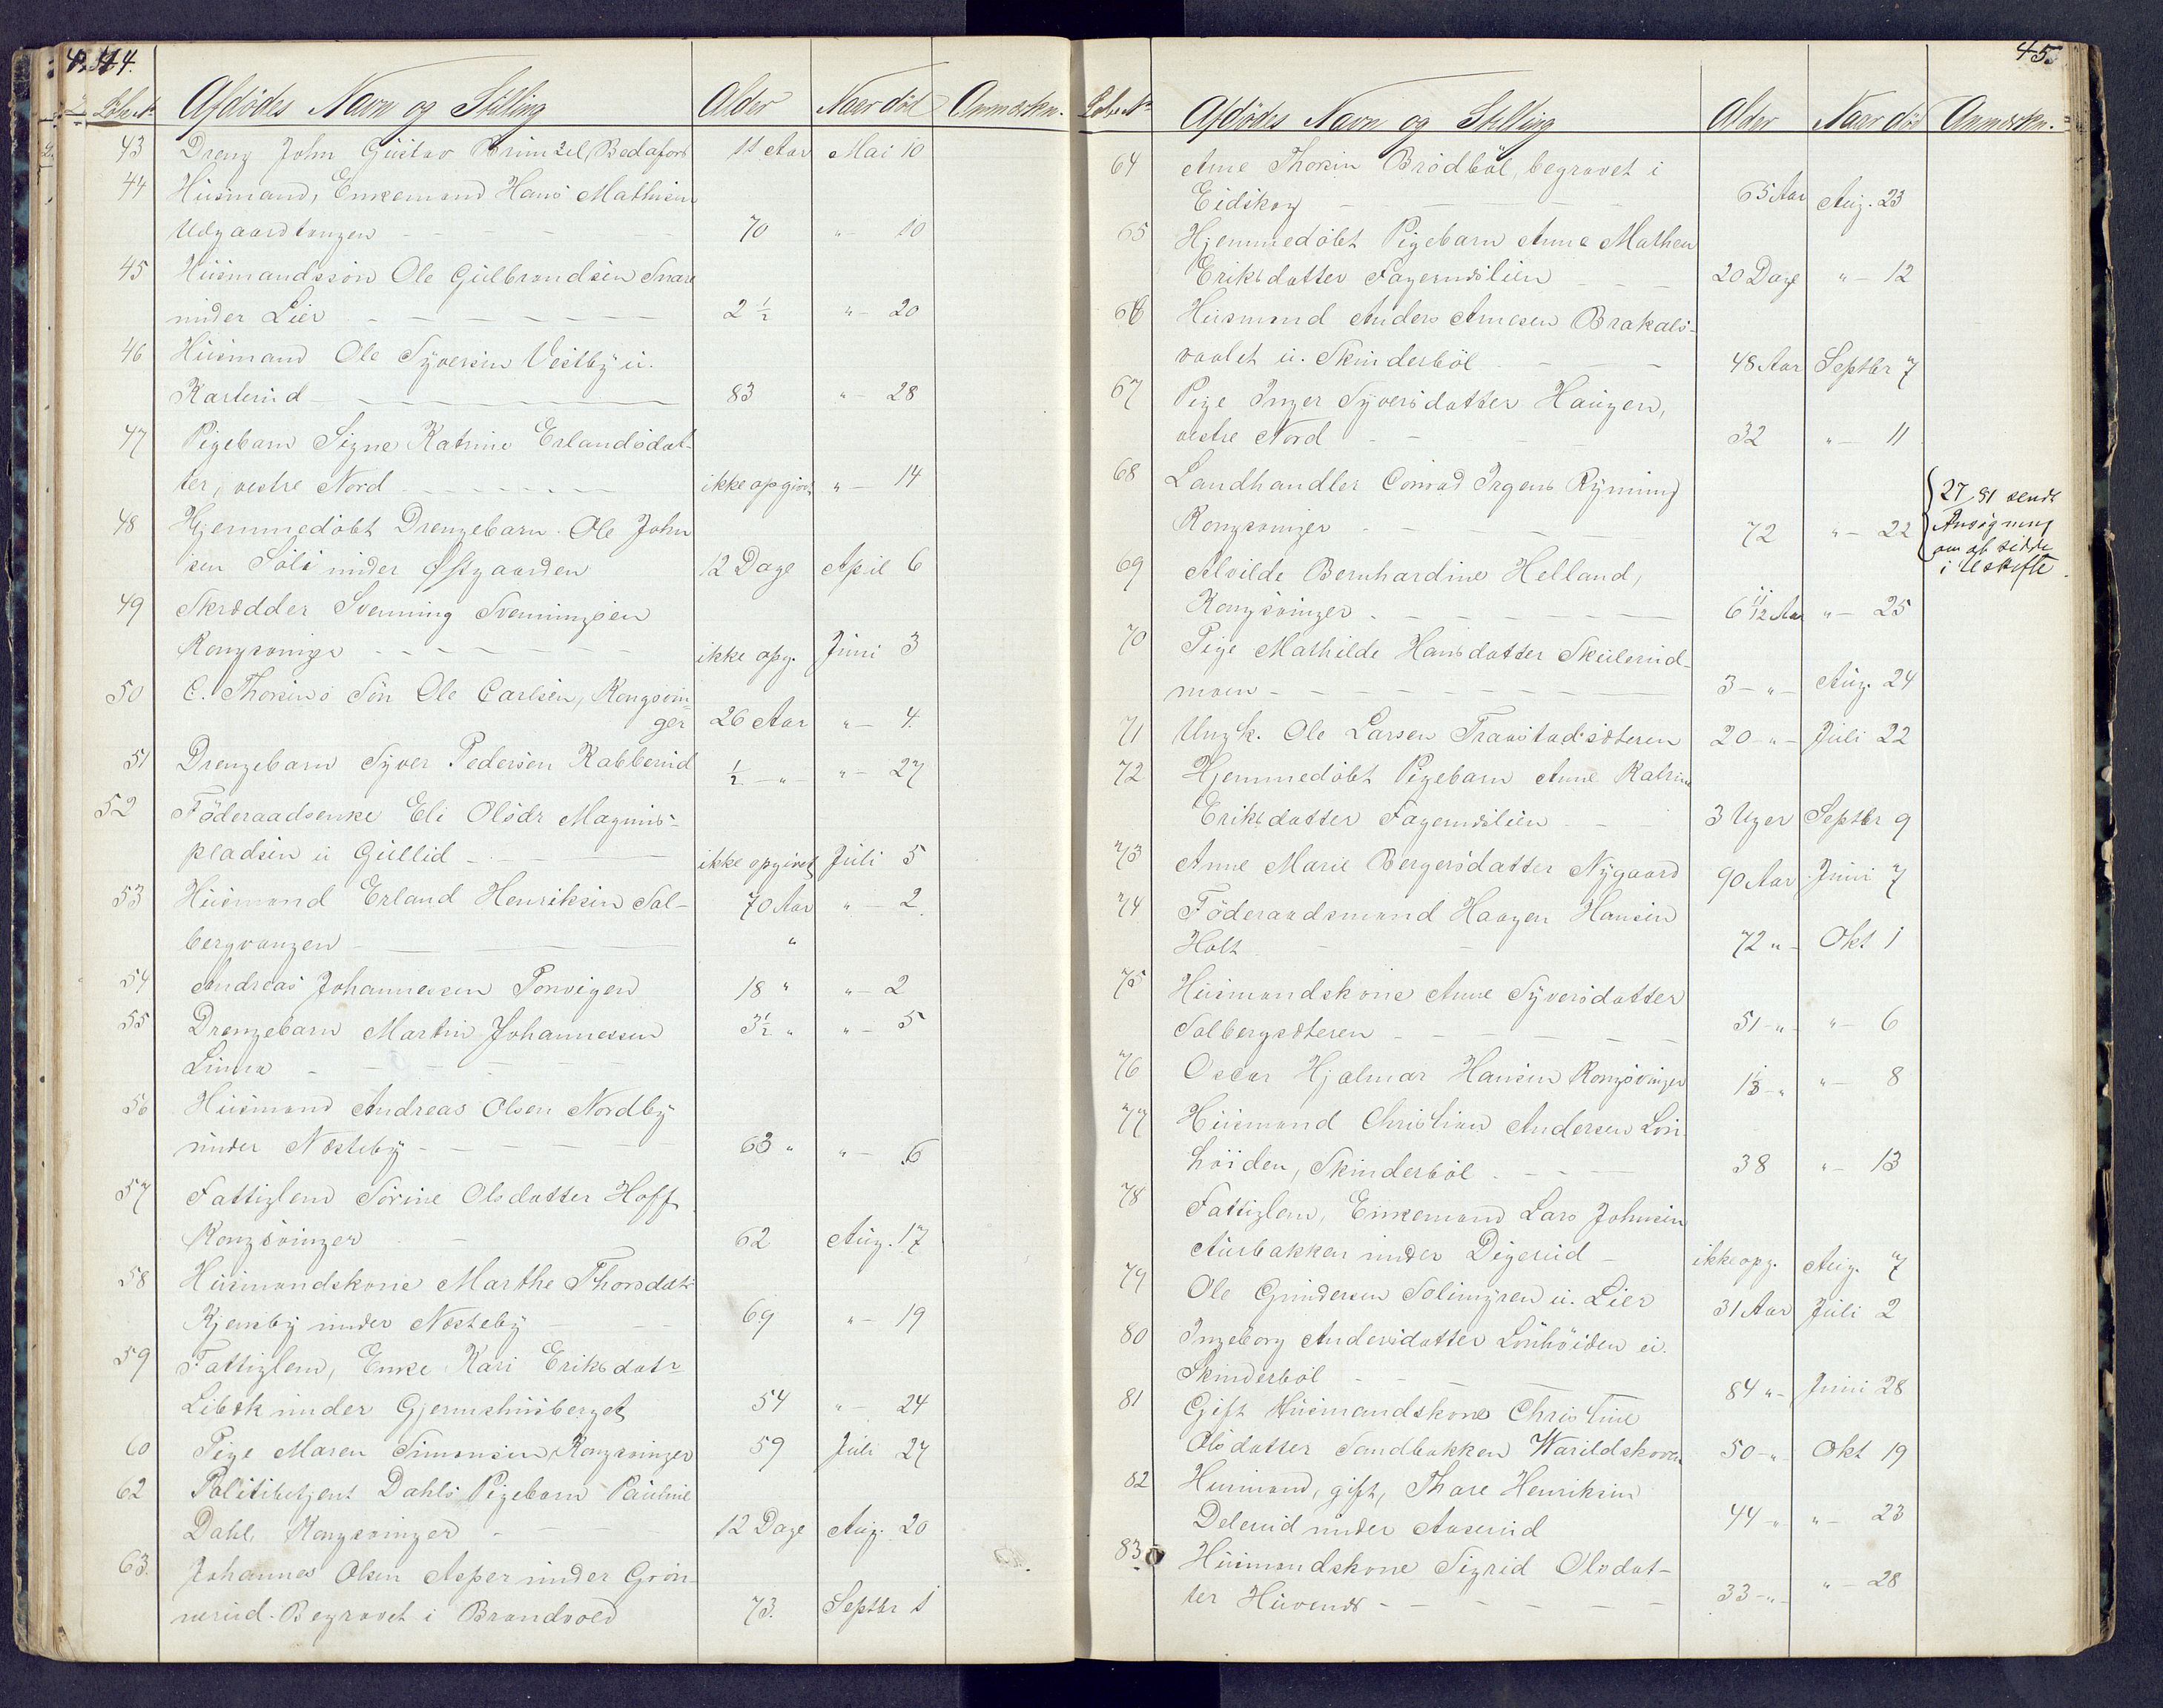 44.
Löbe №  Afdödes Navn og Stilling  Alder  Naar död  Anmærkn.
43  Dreng John Gustav Brimzel, Bedafors  11 Aar  Mai 10
44  Huusmand, Enkemand Hans Mathisen
Udgaardtangen  70  " 10
45  Huusmandssön Ole Gulbrandsen Snare
under Lier  2 1/2  " 20
46  Huusmand Ole Syversen Vestby u.
Karterud  83  " 28
47  Pigebarn Signe Katrine Erlandsdat-
ter, vestre Nord  ikke opgivet  " 14
48  Hjemmedöbt Drengebarn Ole John
sen Söli under Östgaarden  12 Dage  April 6
49  Skrædder Svenning Svenningsen
Kongsvinger  ikke opg.  Juni 3
50  C. Thorsens Sön Ole Carlsen, Kongsvin-
ger  26 Aar  " 4.
51  Drengebarn Syver Pedersen Rabberud  1/2 "  " 27
52  Föderaadsenke Eli Olsdr Magnus-
pladsen u Gullid  ikke opgivet  Juli 5
53  Huusmand Erland Henriksen Sal-
bergvangen  70 Aar  " 2.
54  Andreas Johannesen Porvigen  18 "  " 2
55  Drengebarn Martin Johannessen  3 1/2 "  " 5
Linna
56  Huusmand Andreas Olsen Nordby
under Næsteby  63 "  " 6
57  Fattiglem Sörine Olsdatter Hoff
Kongsvinger  62  Aug. 17
58  Huusmandskone Marthe Thorsdatr
Kjensby under Næsteby  69  " 19
59  Fattiglem, Enke Kari Eriksdatr
Libæk under Gjemshusberget  54  " 24
60  Pige Maren Simonsen, Kongsvinger  59  Juli 27
62  Politibetjent Dahls Pigebarn Pauline
Dahl, Kongsvinger  12 Dage  Aug. 20
63.  Johannes Olsen Asper under Grön-
nerud. Begravet i Brandvold  73.  Septbr 1
45.
Löbe №  Afdödes Navn og Stilling  Alder  Naar död  Anmærkn.
64  Ane Thorsen Brödböl, begravet i
Eidskog  65 Aar  Aug. 23
65  Hjemmedöbt Pigebarn Anne Mathea
Eriksdatter Fagernæslien  20 Dage  " 12
66  Huusmand Anders Arnesen Brakals-
vaalet u. Skinderböl  48 Aar  Septbr 7
67  Pige Inger Syversdatter Haugen,
vestre Nord  32  " 11
68  Landhandler Conrad Irgens Rynning
Kongsvinger  72  " 22  27/ 81 sendt
Ansögning
om at sidde
i Uskifte
69  Alvilde Bernhardine Helland,
Kongsvinger  6 11/12 Aar  " 25
70  Pige Mathilde Hansdatter Skulerud-
moen  3 "  Aug. 24
71  Ungk. Ole Larsen Traastadsæteren  20 "  Juli 22
72  Hjemmedöbt Pigebarn Anne Katrine
Eriksdatter Fagernæslien  3 Uger  Septbr 9
73  Anne Marie Bergersdatter Nygaard  90 Aar  Juni 7
74  Föderaadsmand Haagen Hansen
Holt  72 "  Okt 1
75  Huusmandskone Anne Syversdatter
Salbergsæteren  51 "  " 6
76  Oscar Hjalmar Hansen Kongsvinger  1 1/3 "  " 8
77  Huusmand Christian Andersen Lön-
höiden, Skinderböl  38  " 13
78  Fattiglem, Enkemand Lars Johnsen
Aurbakken under Digerud  ikke opg.  Aug. 7
79  Ole Gundersen Solimyren u. Lier  31 Aar  Juli 2
80  Ingeborg Andersdatter Lönhöiden u.
Skinderböl  84 "  Juni 28
81  Gift Huusmandskone Christine
Olsdatter Sandbakken Varildskoven  50 "  Okt 19
82  Huusmand, gift, Thore Henriksen
Delerud under Aaserud  44 "  " 23
83  Huusmandskone Sigrid Olsdat-
ter Huvends  33 "  " 28